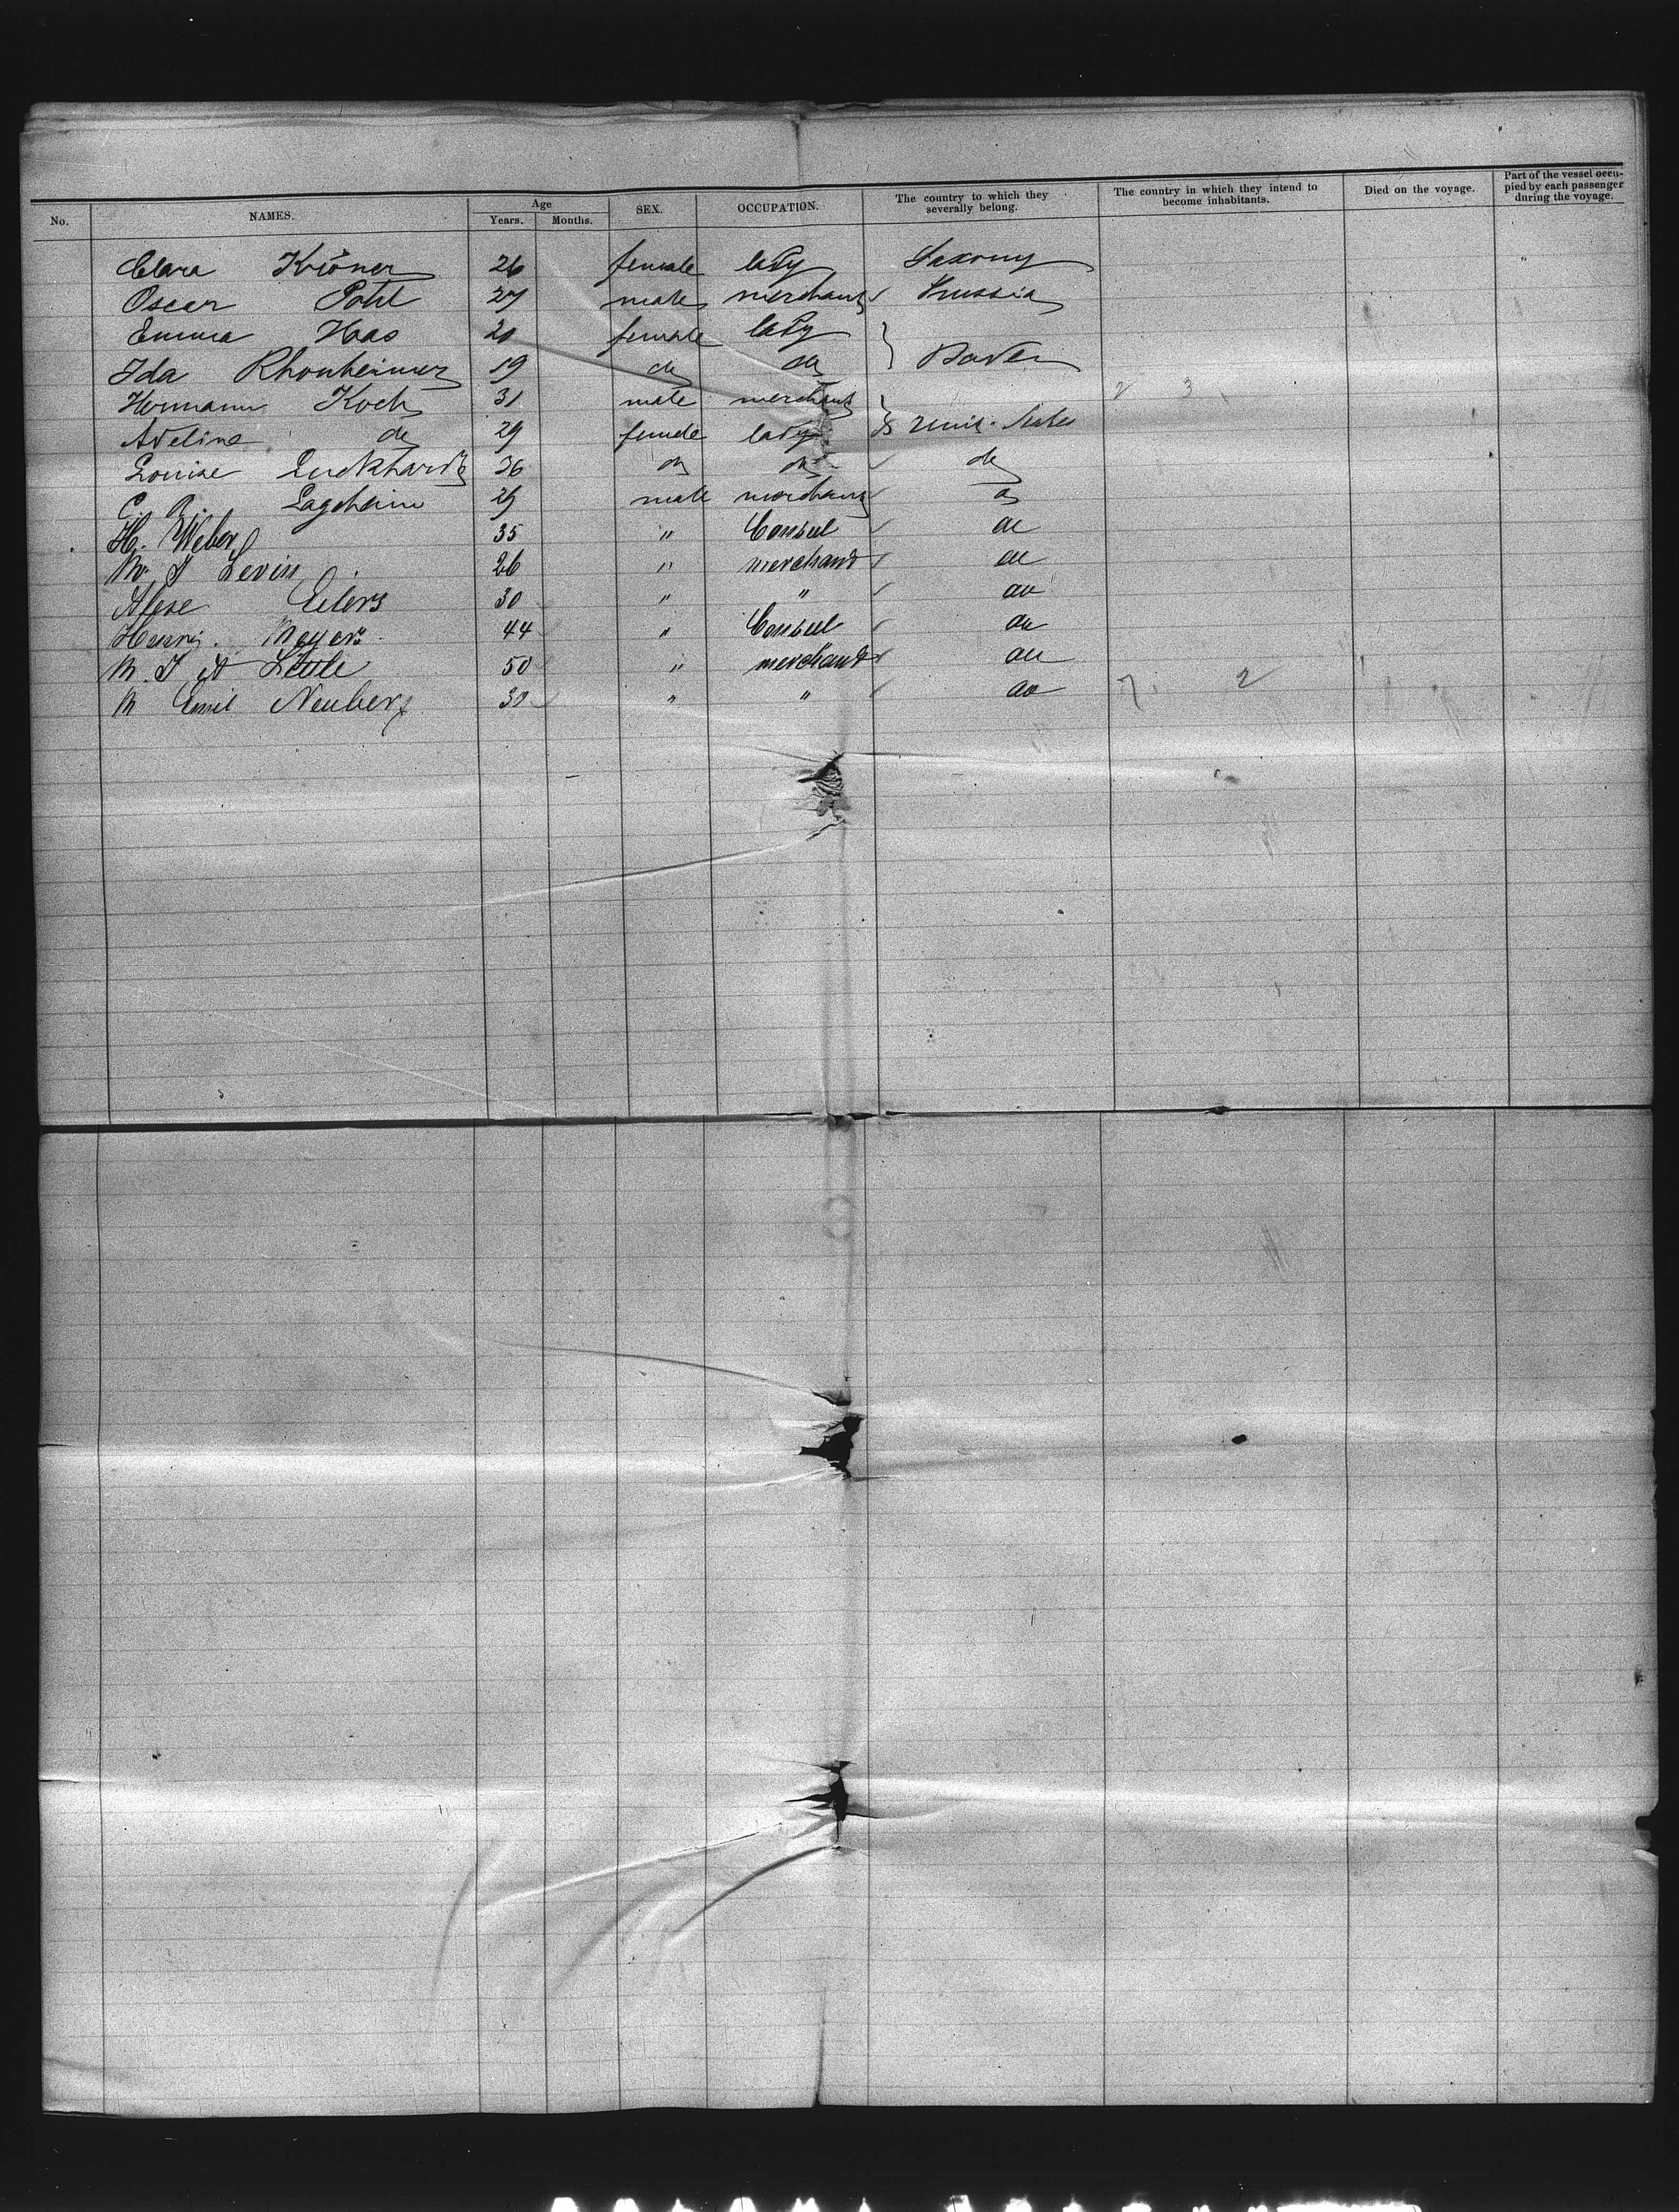 No. NAMES. Age Years. Months. SEX. OCCUPATION. The country to which they severally belong. The country in which they intend to become inhabitants. Died on the voyage. Part of the vessel occupied by each passenger during the voyage.
Clara Kröner 26 female lady Saxony
Oscar Pohl 27 male merchant Prussia
Emma Haas 20 female lady
Ida Rhonheimer 19 do do Baden
Hermann Koch 31 male merchant 2 3
Adeline do 29 female lady Unit. States
Louise Luckhardt 36 do do do
C. Lageheim 29 male merchant do
H. Weber 35 " Consul do
M. J Levin 26 " merchand do
Eilers 30 " " do
Henry Meyers 44 " Consul do
M. J A Little 50 " merchand do
M Emil Neuberg 30 " " do 7. 2